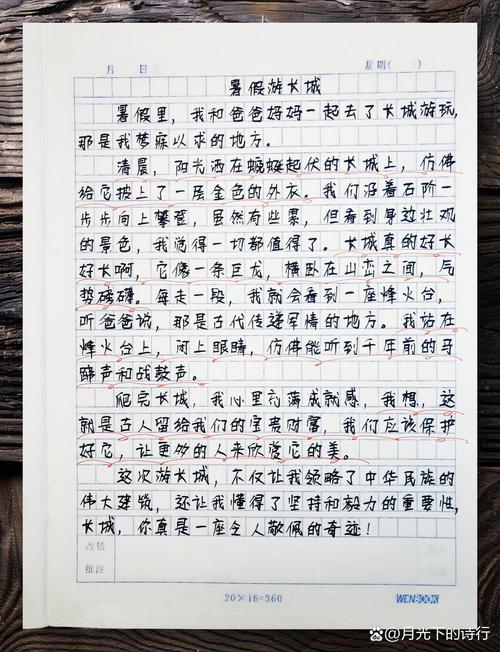 月 日 星期( )
暑假游长城
暑假里，我和爸爸妈妈一起去了长城游玩，
那是我梦寐以求的地方。
清晨，阳光洒在蜿蜒起伏的长城上，仿佛
给它披上了一层金色的外衣。我们沿着石阶一
步步向上攀登，虽然有些累，但看到身边壮观
的景色，我觉得一切都值得了。长城真的好长
好长啊，它像一条巨龙，横卧在山峦之间，气
势磅礴。每走一段，我就会看到一座烽火台，
听爸爸说，那是古代传递军情的地方。我站在
烽火台上，闭上眼睛，仿佛能听到千年前的马
蹄声和战鼓声。
爬完长城，我心里充满成就感，我想，这
就是古人留给我们的宝贵财富，我们应该保护
好它，让更多的人来欣赏它的美。
这次游长城，不仅让我领略了中华民族的
伟大建筑，还让我懂得了坚持和毅力的重要性，
长城，你真是一座令人敬佩的奇迹！
改错
批注
20×18=360 WENBOOK
@月光下的诗行